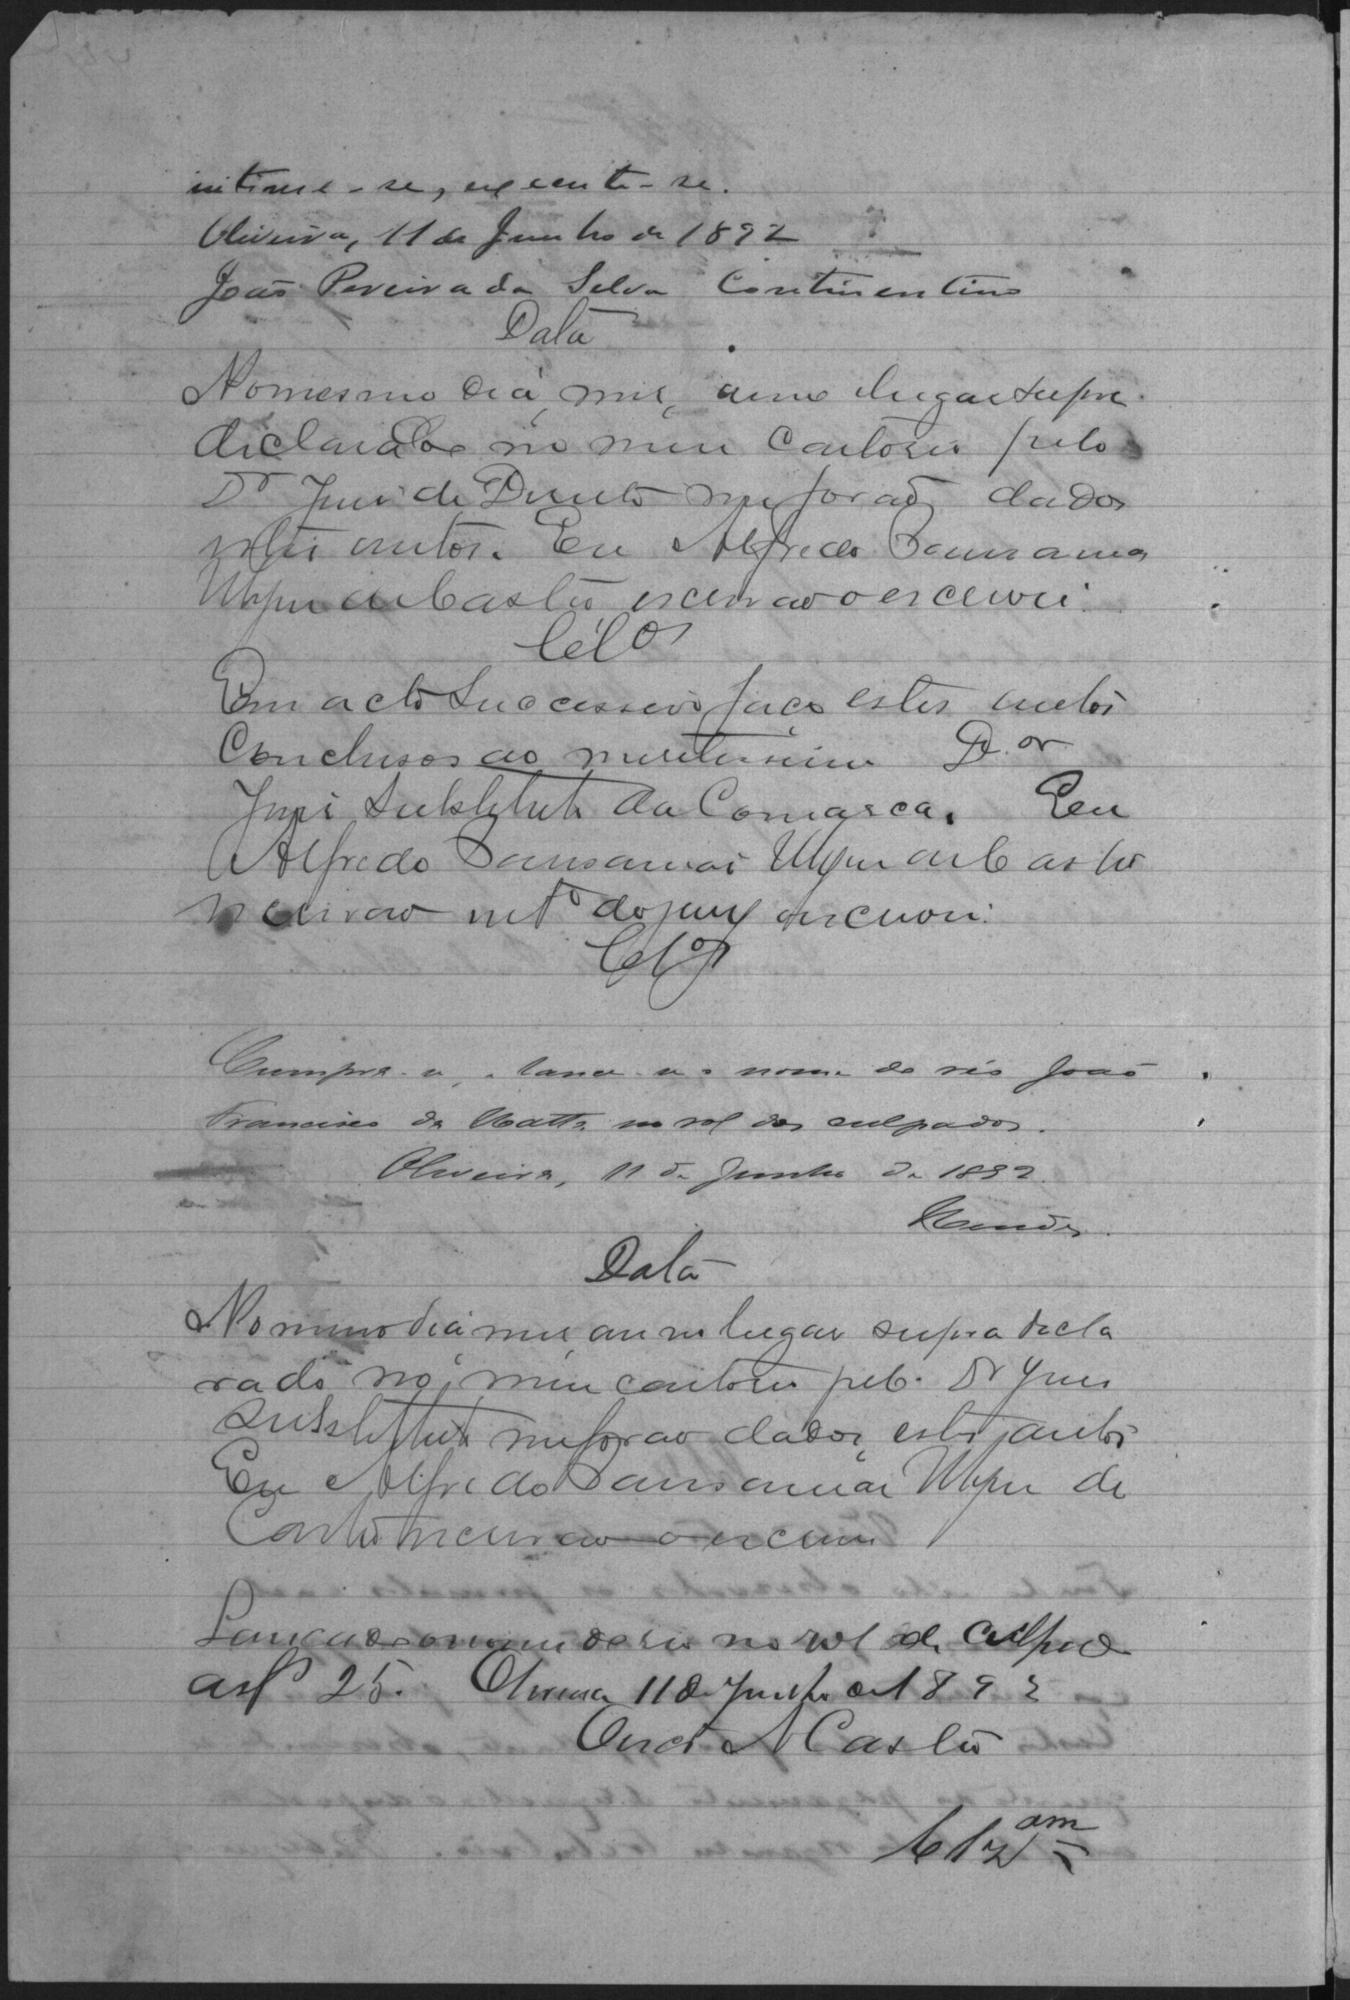 intime-se, execute-se.
Oliveira, 11 de Junho de 1892
João Pereira da Silva Continentino
Data
No mesmo dia, mez, anno lugar supra
declarado no meu cartorio pelo
Dr Juiz de Direito me forão dados
estes autos. Eu Alfredo
de Castro escrivão o escrevi.
Clos
Em acto successivo faço estes autos
Conclusos ao meritissimo Dor
Juiz Substituto da Comarca. Eu
Alfredo de Castro
escrivão do jury o escrevi.
Clos
Cumpra-se, e lance-se o nome do réo João
Francisco da Matta no rol dos culpados.
Oliveira, 11 de Junho de 1892.
Data
No mesmo dia mez, anno lugar supra decla
rado no meu cartorio pelo Dr Juiz
Substituto me forão dados estes autos
Eu Alfredo de
Castro escrivão o escrevi
Lançado o nome do reo no rol de culpado
as f 25. Oliveira 11 de Junho de 1892
Castro